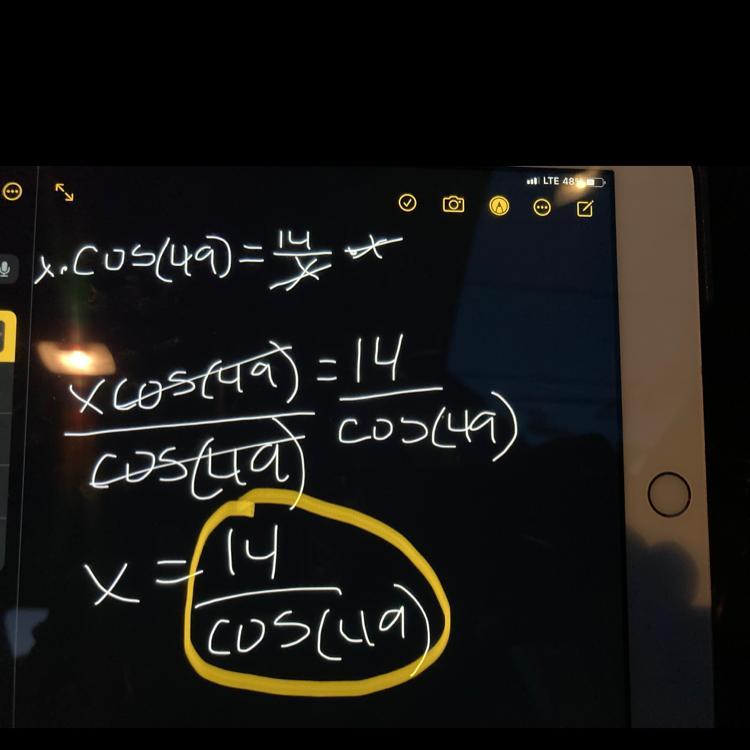 LTE 48%
x · cos(49) = 14/x · x
x cos(49)/cos(49) = 14/cos(49)
x = 14/cos(49)